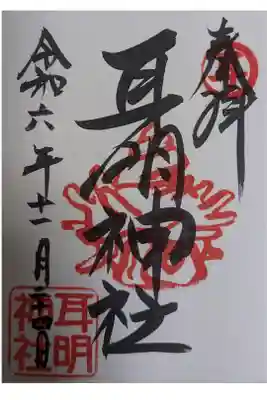 奉拝
耳明神社
令和六年十一月二四日
耳明
神社